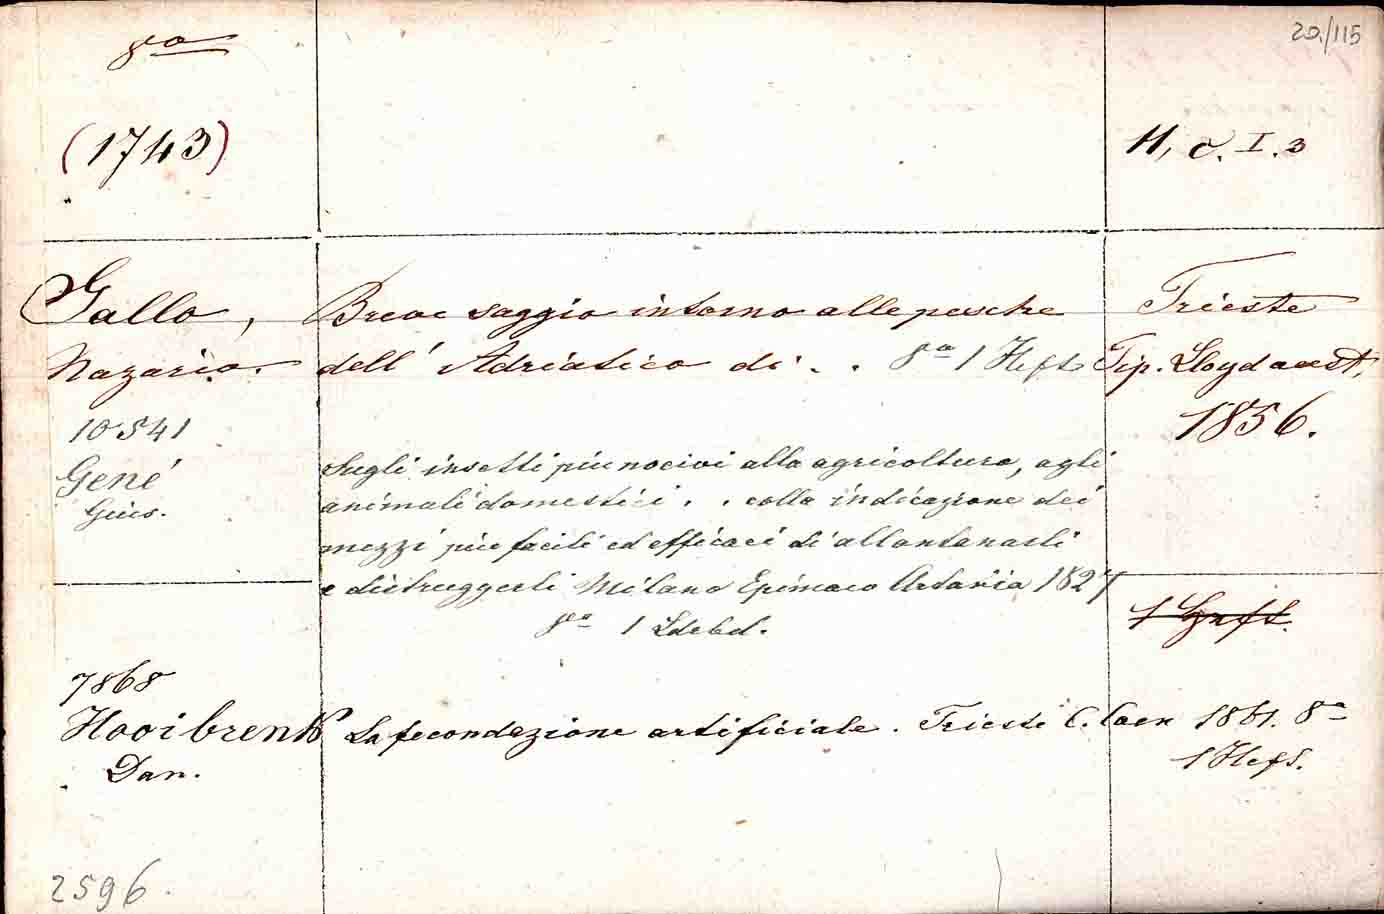 20./115
8o
(1743)
H, c. I. 3
Gallo, Breve saggio intorno alle pesche Trieste
Nazario. dell' Adriatico di . . 8o 1 Heft Tip. Lloyd aust.
1856.
10541
Gené
Gius.
Sugli insetti piu nocivi alla agricoltura, agli
animali domestici . . colla indicazione dei
mezzi piu facili ed efficaci di allontanarli
e distruggerli Milano Epimaco Artaria 1827
8o 1 Ldrbd.
1 Heft.
7868
Hooibrenk La fecondazione artificiale. Trieste C. Coen 1861. 8o
Dan. 1 Heft.
2596.